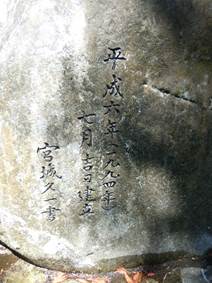 平成六年(一九九四年)
七月吉日建立
宮城久一書